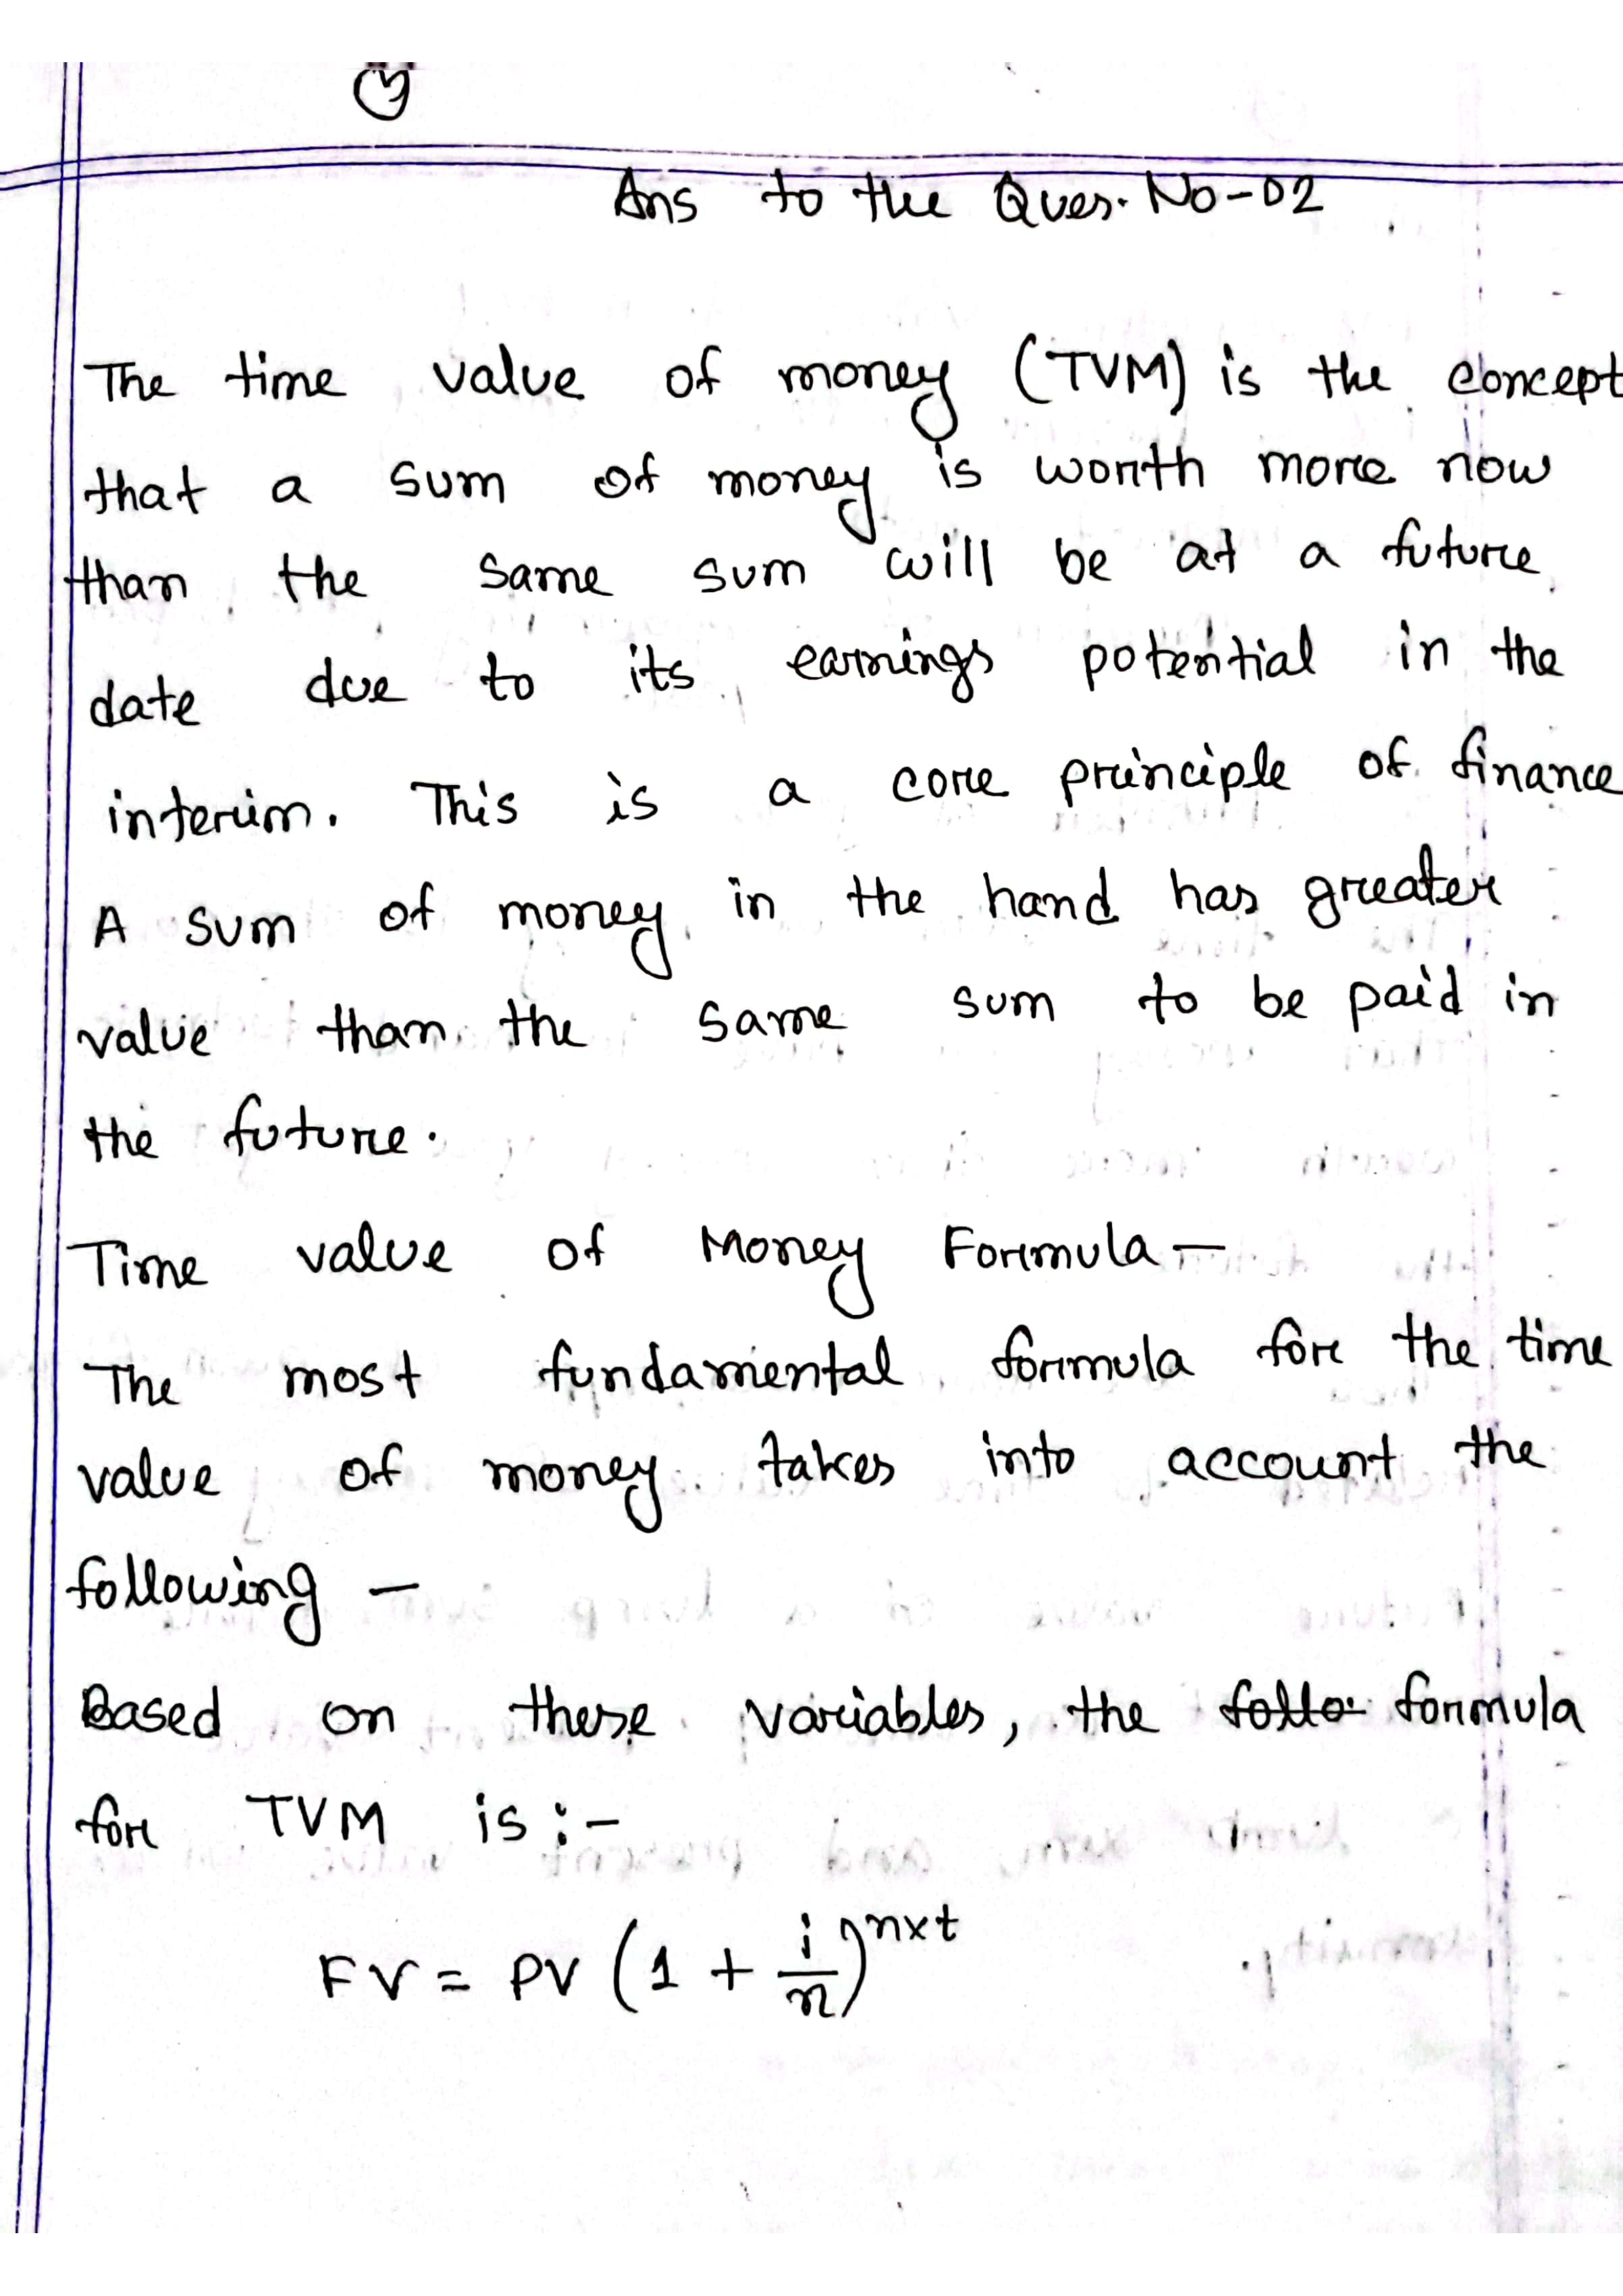 Ans to the Ques. No-02
The time value of money (TVM) is the concept
that a sum of money is worth more now
than the same sum will be at a future
date due to its earnings potential in the
interim. This is a core principle of finance
A sum of money in the hand has greater
value than the same sum to be paid in
the future.
Time value of Money Formula —
The most fundamental formula for the time
value of money takes into account the
following —
Based on these variables, the follo formula
for TVM is :-
FV = PV (1 + i/n)^n×t